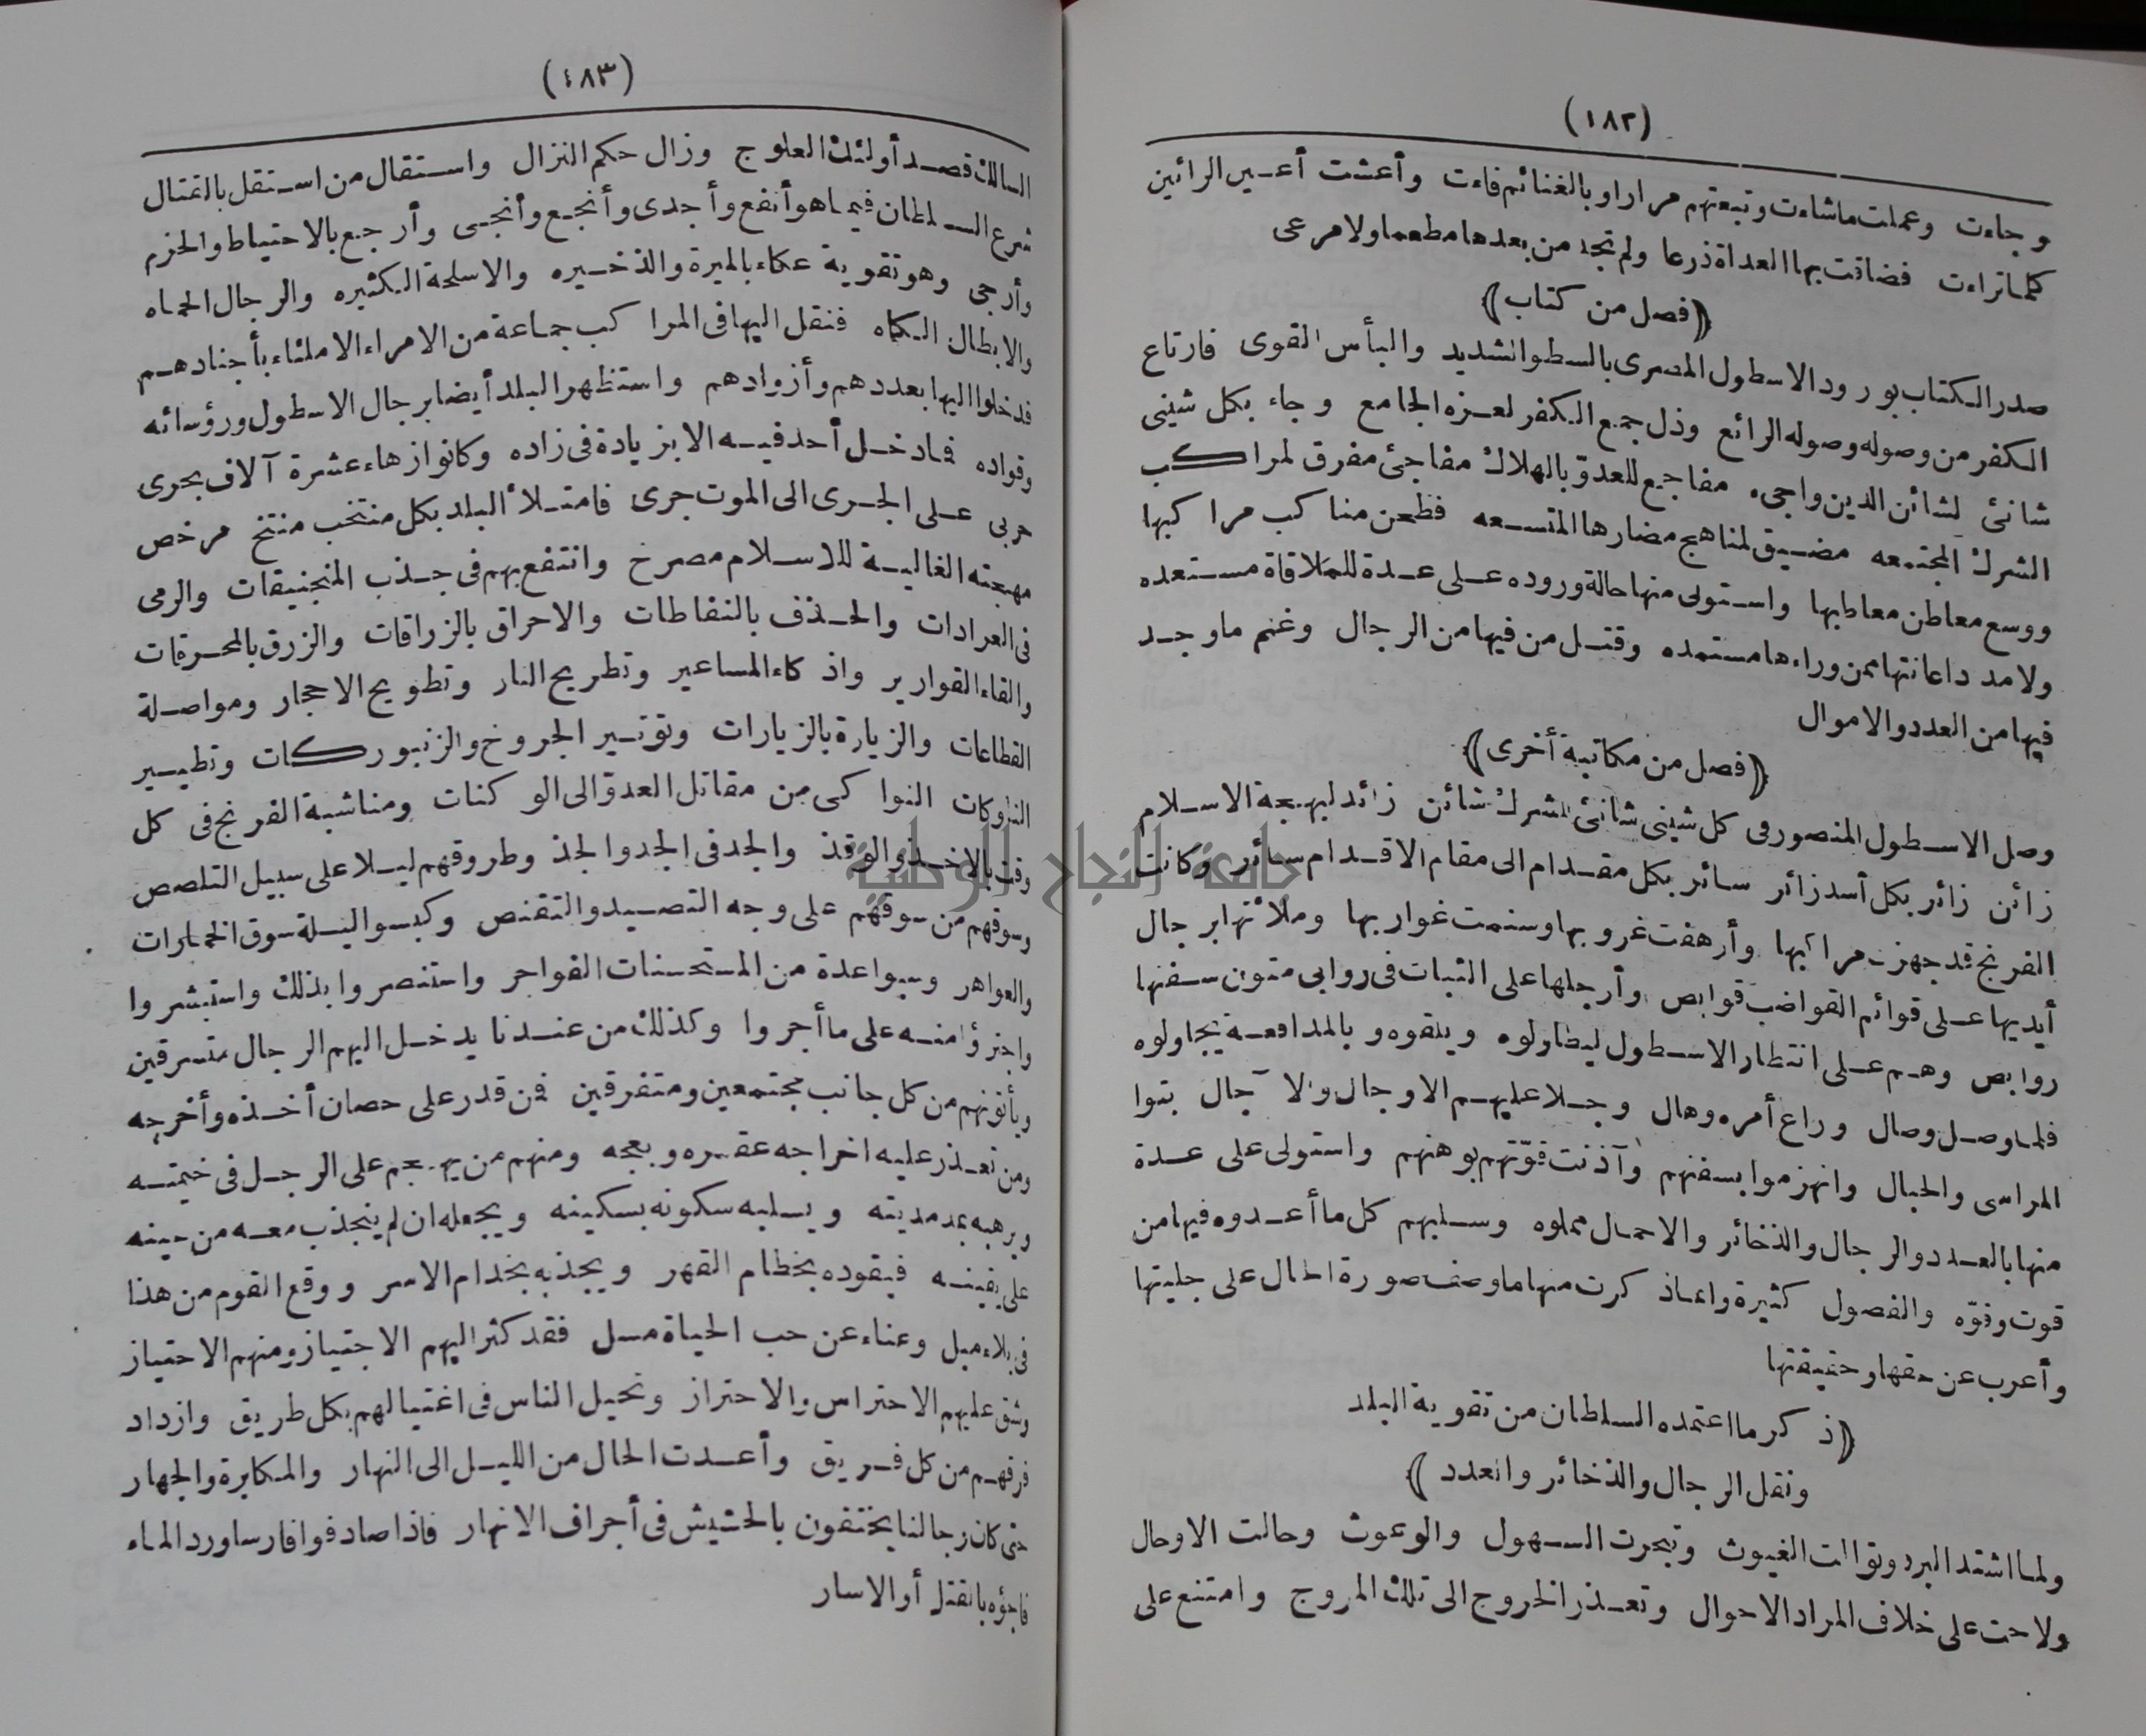 (١٨٢)
وجاءت وعملت ماشاءت وتبعتهم مرارا وبالغنائم فاءت وأعشت أعين الرائين
كلما تراءت فضاقت بها العداة ذرعا ولم تجد من بعدها مطعما ولا مرعى
(فصل من كتاب)
صدر الكتاب بورود الاسطول المصرى بالسطو الشديد والبأس القوى فارتاع
الكفر من وصوله وصوله الرائع وذل جمع الكفر لعزه الجامع وجاء بكل شينى
شانئ لشائن الدين واجىء مفاجيع للعدو بالهلاك مفاجئ مفرق لمراكب
الشرك المجتمعه مضيق لمناهج مضارها المتسعه فطعن مناكب مراكبها
ووسع معاطن معاطبها واستولى منها حالة وروده على عدة للملاقاة مستعده
ولامداد اعانتها ممن وراءها مستمده وقتل من فيها من الرجال وغنم ما وجد
فيها من العدد والاموال
(فصل من مكاتبة أخرى)
وصل الاسطول المنصور فى كل شينى شانئ للشرك شائن زائد لبهجة الاسلام
زائن زائر بكل أسد زائر سائر بكل مقدام الى مقام الاقدام سائر وكانت
الفرنج قد جهزت مراكبها وأرهفت غروبها وسنمت غواربها وملأتها برجال
أيديها على قوائم القواضب قوابض وأرجلها على الثبات فى روابى متون سفنها
روابص وهم على انتظار الاسطول ليطاولوه ويلقوه وبالمدافعة يحاولوه
فلما وصل وصال وراع أمره وهال وجلا عليهم الاوجال والآجال بتوا
المراسى والحبال وانهزموا بسفنهم وآذنت قوّتهم بوهنهم واستولى على عدة
منها بالعدد والرجال والذخائر والاحمال مملوه وسلبهم كل ما أعدوه فيها من
قوت وقوّه والفصول كثيرة وانما ذكرت منها ما وصف صورة الحال على جليتها
وأعرب عن حقها وحقيقتها
(ذكر ما اعتمده السلطان من تقوية البلد
ونقل الرجال والذخائر والعدد)
ولما اشتد البرد وتوالت الغيوث وتبحرت السهول والوعوث وحالت الاوحال
ولاحت على خلاف المراد الاحوال وتعذر الخروج الى تلك المروج وامتنع على
(١٨٣)
السالك قصد أولئك العلوج وزال حكم النزال واستقال من استقل بالقتال
شرع السلطان فيما هو أنفع وأجدى وأنجع وأنجى وأرجع بالاحتياط والحزم
وأرجى وهو تقوية عكاء بالميرة والذخيره والاسلحة الكثيره والرجال الحماه
والابطال الكماه فنقل اليها فى المراكب جماعة من الامراء الاملئاء بأجنادهم
فدخلوا اليها بعددهم وأزوادهم واستظهر البلد أيضا برجال الاسطول ورؤسائه
وقواده فما دخل أحد فيه الا بزيادة فى زاده وكانوا زهاء عشرة آلاف بحرى
حربى على الجرى الى الموت جرى فامتلأ البلد بكل منتخب منتخ مرخص
مهجته الغالية للاسلام مصرخ وانتفع بهم فى جذب المنجنيقات والرمى
فى العرادات والحذف بالنفاطات والاحراق بالزراقات والزرق بالمحرقات
والقاء القوارير واذكاء المساعير وتطريح النار وتطويح الاحجار ومواصلة
القطاعات والزيارة بالزيارات وتوتير الجروخ والزنبوركات وتطيير
الناوكات النواكى من مقاتل العدو الى الوكنات ومناشبة الفرنج فى كل
وقت بالاخذ والوقذ والجد فى الجد والجذ وطروقهم ليلا على سبيل التلصص
وسوقهم من سوقهم على وجه التصيد والتقنص وكبسوا ليلة سوق الخمارات
والعواهر وسبوا عدة من المستحسنات الفواجر واستنصروا بذلك واستبشروا
واجترؤا منه على ما أجروا وكذلك من عندنا يدخل اليهم الرجال متسرقين
ويأتونهم من كل جانب مجتمعين ومتفرقين فمن قدر على حصان أخذه وأخرجه
ومن تعذر عليه اخراجه عقره وبعجه ومنهم من يهجم على الرجل فى خيمته
ويرهبه بمد مديته ويسلبه سكونه بسكينه ويجعله ان لم ينجذب معه من حينه
على يقينه فيقوده بخطام القهر ويجذبه بخدام الاسر ووقع القوم من هذا
فى بلاء مبل وعناء عن حب الحياة مسل فقد كثر اليهم الاجتياز ومنهم الاحتياز
وشق عليهم الاحتراس والاحتراز وتحيل الناس فى اغتيالهم بكل طريق وازداد
فرقهم من كل فريق وأعدت الحال من الليل الى النهار والمكابرة والجهار
حتى كان رجالنا يختفون بالحشيش فى أجراف الانهار فاذا صادفوا فارسا ورد الماء
فاجؤه بالقتل أو الاسار
جامعة النجاح الوطنية